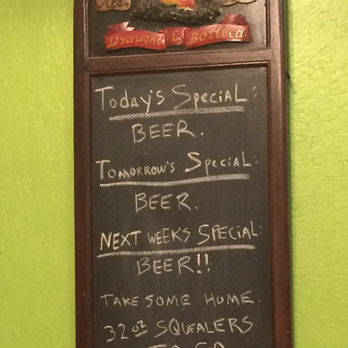 Draught & Bottled
Today's Special:
BEER.
Tomorrow's Special:
BEER.
NEXT WEEK'S SPECIAL:
BEER!!
TAKE SOME HOME.
32oz SQUEALERS
TO GO